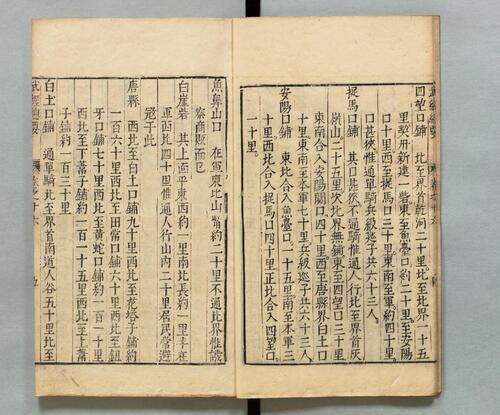 四望口鋪 北至界首乾河二十里北至北界一十五
里契丹新建一砦東至魚臺口約二十里至安陽
口十里西至捉馬口三十里東南至軍約四十里
口甚狹惟通單騎兵級巡子共六十三人
捉馬口鋪 其口甚狹不通騎惟通人行北至界首灰
嶺山二十五里次北界無鋪東至四望口三十里
東南合入安陽關口四十里西至唐縣界白土口
十里東南至本軍七十里兵級巡子共六十三人
安陽口鋪 東北合入魚臺口一十五里南至本軍三
十里西北合入捉馬口四十里正北合入四望口
一十里
魚鼻山口 在軍東北山脊約二十里不通北界惟譏
察商販而已
白崖砦 其上面平東西約一里南北長約一里半在
軍西北四十里惟通人行山內二十里居民常避
寇于此
唐縣 西北至白土口鋪九十里西北至花塔子鋪約
一百六十里西北至田常口鋪六十里西北至鈕
牙口鋪七十里西北至黃蛇口鋪約一百一十里
西北至下葦子鋪約一百二十五里西北至上葦
子鋪約一百三十里
白土口鋪 通單騎北至界首南道人谷五十里北至
武經總要 五